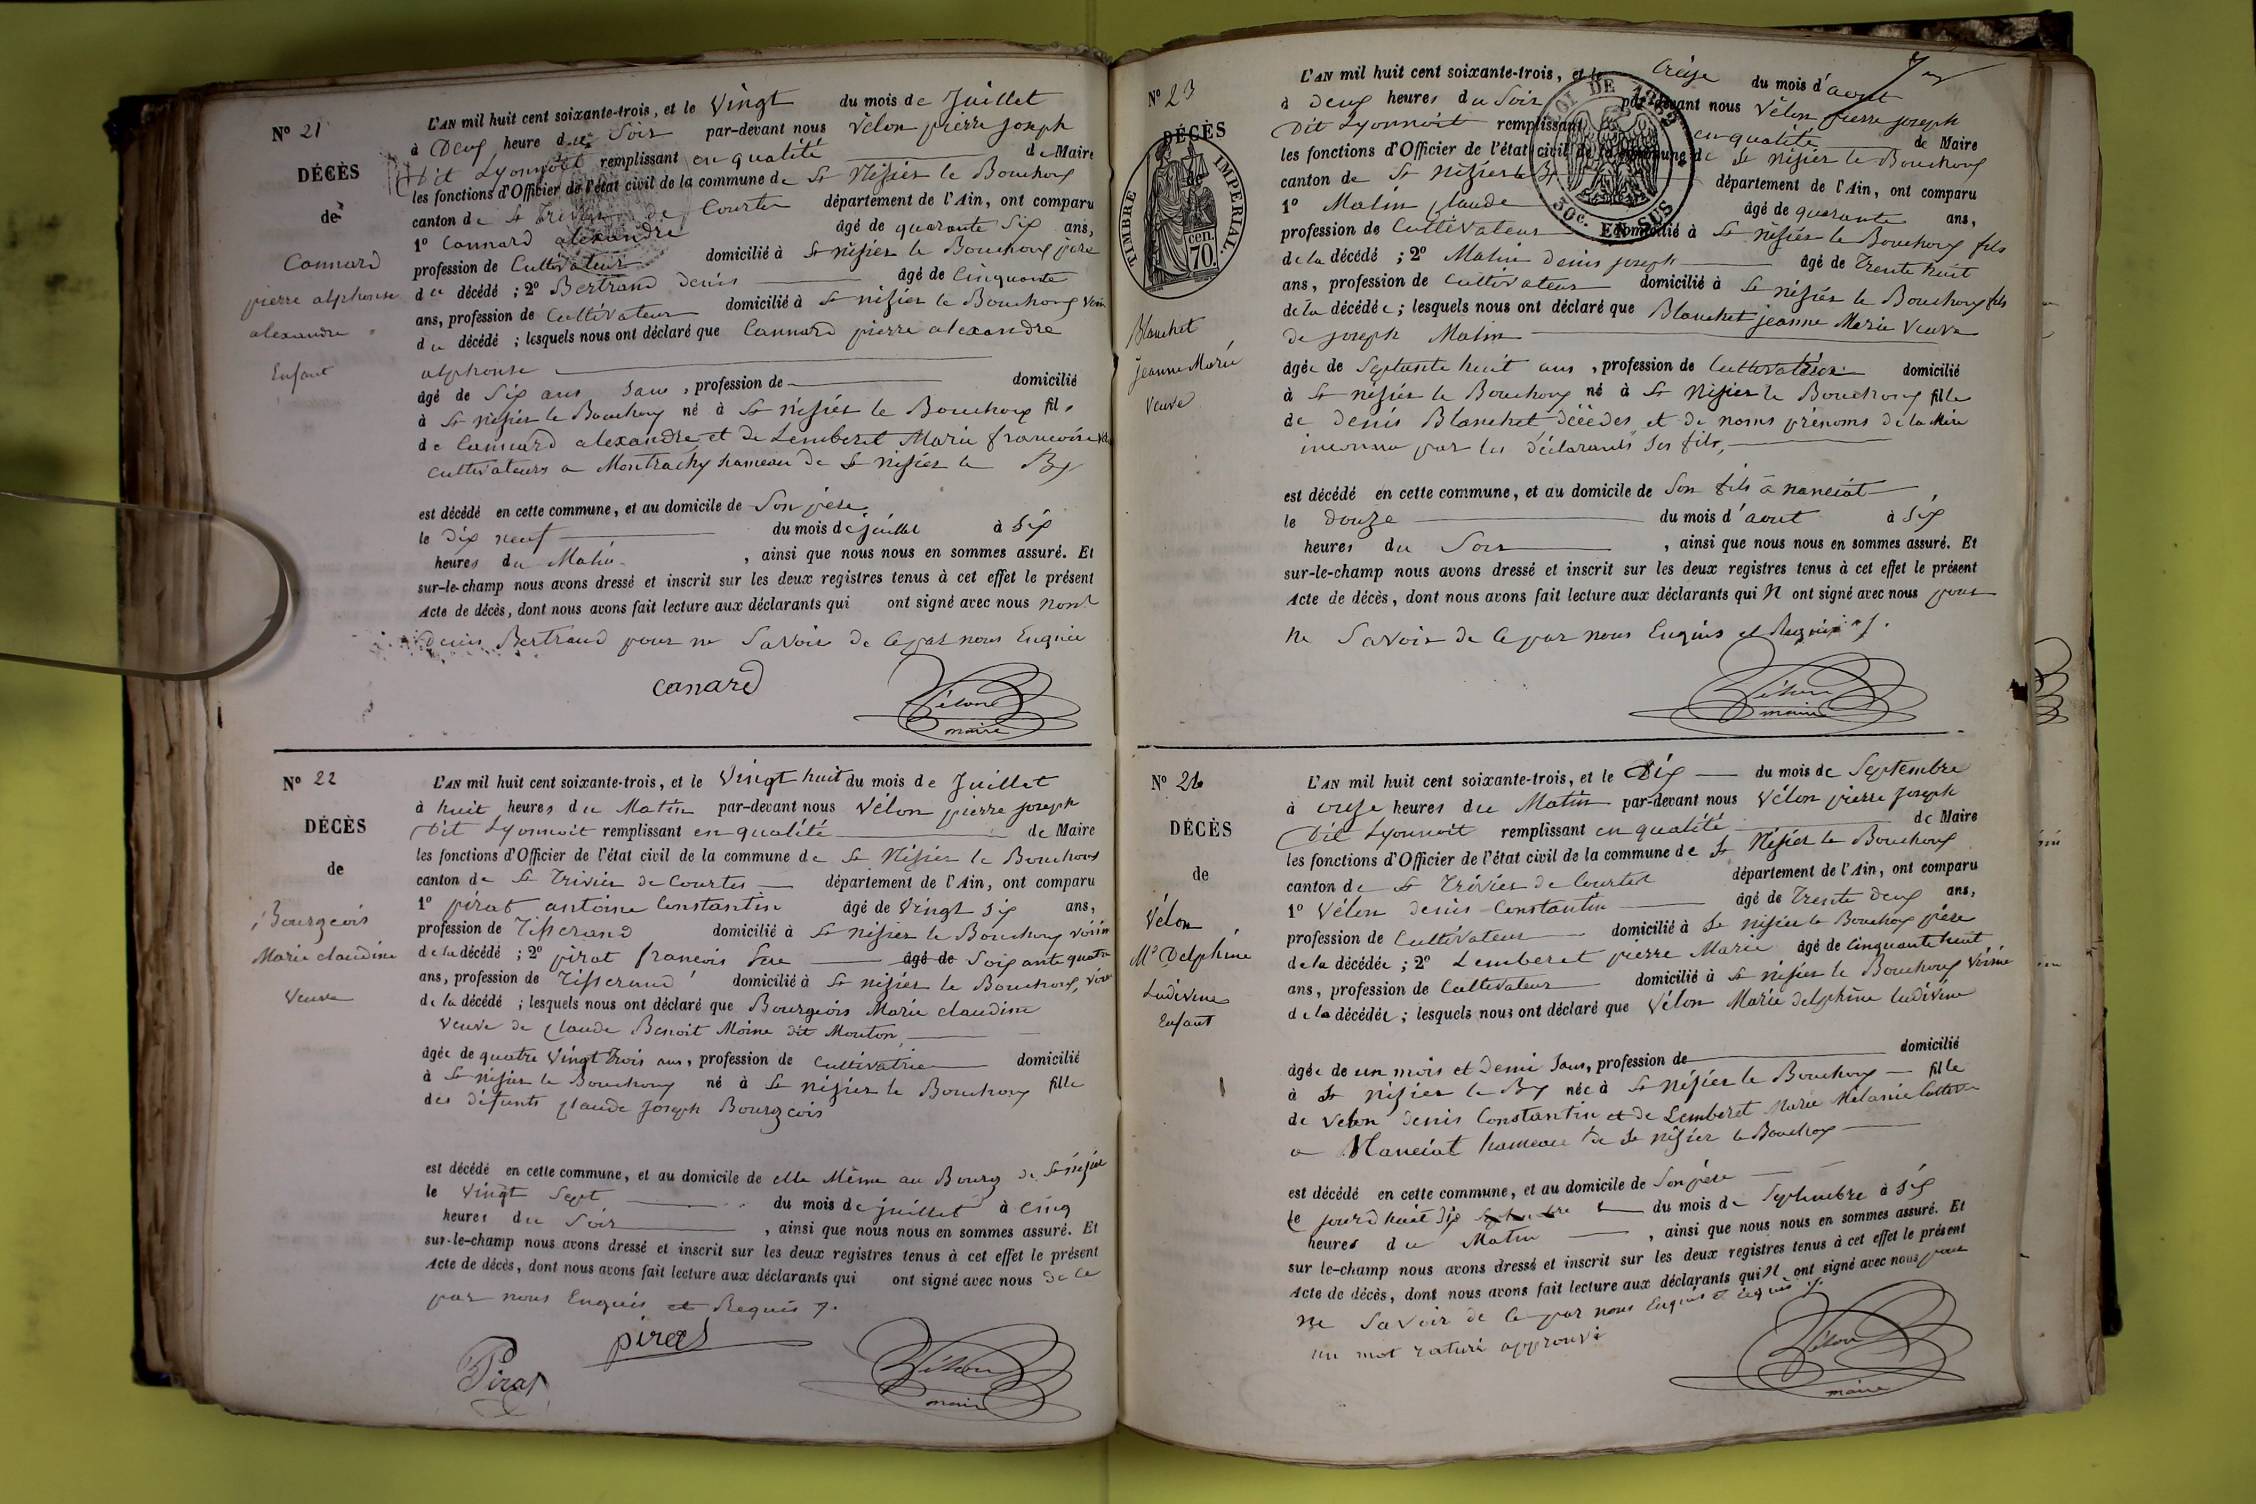 N° 21
DÉCÈS
de
Connard
pierre alphonse
alexandre
Enfant
L'AN mil huit cent soixante-trois, et le Vingt du mois de Juillet
à Deux heure du Soir par-devant nous Vélon pierre Joseph
Dit Lyonnoit remplissant en qualité de Maire
les fonctions d'Officier de l'état civil de la commune de St Nisier le Bouchoux
canton de St Trivier de Courtes département de l'Ain, ont comparu
1° Connard alexandre âgé de quarante Six ans,
profession de Cultivateur domicilié à St nisier le Bouchoux père
du décédé ; 2° Bertrand denis âgé de Cinquante
ans, profession de Cultivateur domicilié à St nisier le Bouchoux voisin
du décédé ; lesquels nous ont déclaré que Connard pierre alexandre
alphonse
âgé de Six ans Sans , profession de domicilié
à St nisier le Bouchoux né à St nisier le Bouchoux fils
de Connard alexandre et de Lemberet Marie francoise
Cultivateurs a Montrachy hameau de St nisier le Bx
est décédé en cette commune, et au domicile de Son père
le dix neuf du mois de juillet à Six
heures du Matin , ainsi que nous nous en sommes assuré. Et
sur-le-champ nous avons dressé et inscrit sur les deux registres tenus à cet effet le présent
Acte de décès, dont nous avons fait lecture aux déclarants qui ont signé avec nous non
denis Bertrand pour ne Savoir de Ce par nous Enquis
canard
Vélon
maire
N° 22
DÉCÈS
de
Bourgeois
Marie claudine
Veuve
L'AN mil huit cent soixante-trois, et le Vingt huit du mois de Juillet
à huit heures du Matin par-devant nous Vélon pierre Joseph
Dit Lyonnoit remplissant en qualité de Maire
les fonctions d'Officier de l'état civil de la commune de St Nisier le Bouchoux
canton de St Trivier de Courtes département de l'Ain, ont comparu
1° pirat antoine Constantin âgé de Vingt Six ans,
profession de Tisserand domicilié à St nisier le Bouchoux voisin
de la décédé ; 2° pirat francois âgé de Soixante quatre
ans, profession de Tisserand domicilié à St nisier le Bouchoux, voisin
de la décédé ; lesquels nous ont déclaré que Bourgeois Marie claudine
Veuve de Claude Benoit Moine dit Mouton
âgée de quatre Vingt Trois ans, profession de Cultivatrice domicilié
à St nisier le Bouchoux né à St nisier le Bouchoux fille
des défunts Claude Joseph Bourgeois
est décédé en cette commune, et au domicile de elle Même au Bourg de St nisier
le Vingt Sept du mois de juillet à Cinq
heures du Soir , ainsi que nous nous en sommes assuré. Et
sur-le-champ nous avons dressé et inscrit sur les deux registres tenus à cet effet le présent
Acte de décès, dont nous avons fait lecture aux déclarants qui ont signé avec nous de Ce
par nous Enquis et Requis
pirat
Pirat
Vélon
maire
N° 23
DÉCÈS
de
TIMBRE IMPERIAL.
70 cen.
Blanchet
Jeanne Marie
Veuve
LOI DE 1862
30c. EN SUS
L'AN mil huit cent soixante-trois, et le treize du mois d'aout
à Deux heures du Soir par-devant nous Vélon pierre Joseph
Dit Lyonnoit remplissant en qualité de Maire
les fonctions d'Officier de l'état civil de la commune de St nisier le Bouchoux
canton de St nisier le Bx département de l'Ain, ont comparu
1° Matin Claude âgé de quarante ans,
profession de Cultivateur domicilié à St nisier le Bouchoux fils
de la décédé ; 2° Matin Denis joseph âgé de Trente huit
ans, profession de Cultivateur domicilié à St nisier le Bouchoux fils
de la décédée ; lesquels nous ont déclaré que Blanchet jeanne Marie Veuve
de joseph Matin
âgée de Septante huit ans , profession de Cultivatrice domicilié
à St nisier le Bouchoux né à St Nisier le Bouchoux fille
de denis Blanchet décédés et de noms prénoms de la Mère
inconnu par les déclarants Ses fils,
est décédé en cette commune, et au domicile de Son fils à nanciat
le douze du mois d'aout à Six
heures du Soir , ainsi que nous nous en sommes assuré. Et
sur-le-champ nous avons dressé et inscrit sur les deux registres tenus à cet effet le présent
Acte de décès, dont nous avons fait lecture aux déclarants qui N ont signé avec nous pour
ne Savoir de Ce par nous Enquis et Requis
Vélon
maire
N° 24
DÉCÈS
de
Vélon
Me Delphine
Ludivine
Enfant
L'AN mil huit cent soixante-trois, et le Dix du mois de Septembre
à onze heures du Matin par-devant nous Vélon pierre Joseph
Dit Lyonnoit remplissant en qualité de Maire
les fonctions d'Officier de l'état civil de la commune de St Nisier le Bouchoux
canton de St Trivier de Courtes département de l'Ain, ont comparu
1° Vélon denis Constantin âgé de Trente Deux ans,
profession de Cultivateur domicilié à St nisier le Bouchoux père
de la décédée ; 2° Lemberet pierre Marie âgé de Cinquante huit
ans, profession de Cultivateur domicilié à St nisier le Bouchoux Voisin
de la décédée ; lesquels nous ont déclaré que Vélon Marie delphine ludivine
âgée de un mois et Demi Sans, profession de domicilié
à St nisier le Bx née à St Nisier le Bouchoux fille
de Velon denis Constantin et de Lemberet Marie Mélanie
a Nanciat hameau de St nisier le Bouchoux
est décédé en cette commune, et au domicile de Son père
le jourd huit dix du mois de Septembre à Six
heures du Matin , ainsi que nous nous en sommes assuré. Et
sur le-champ nous avons dressé et inscrit sur les deux registres tenus à cet effet le présent
Acte de décès, dont nous avons fait lecture aux déclarants qui N ont signé avec nous pour
ne Savoir de Ce par nous Enquis et requis
un mot raturé approuvé
Vélon
maire